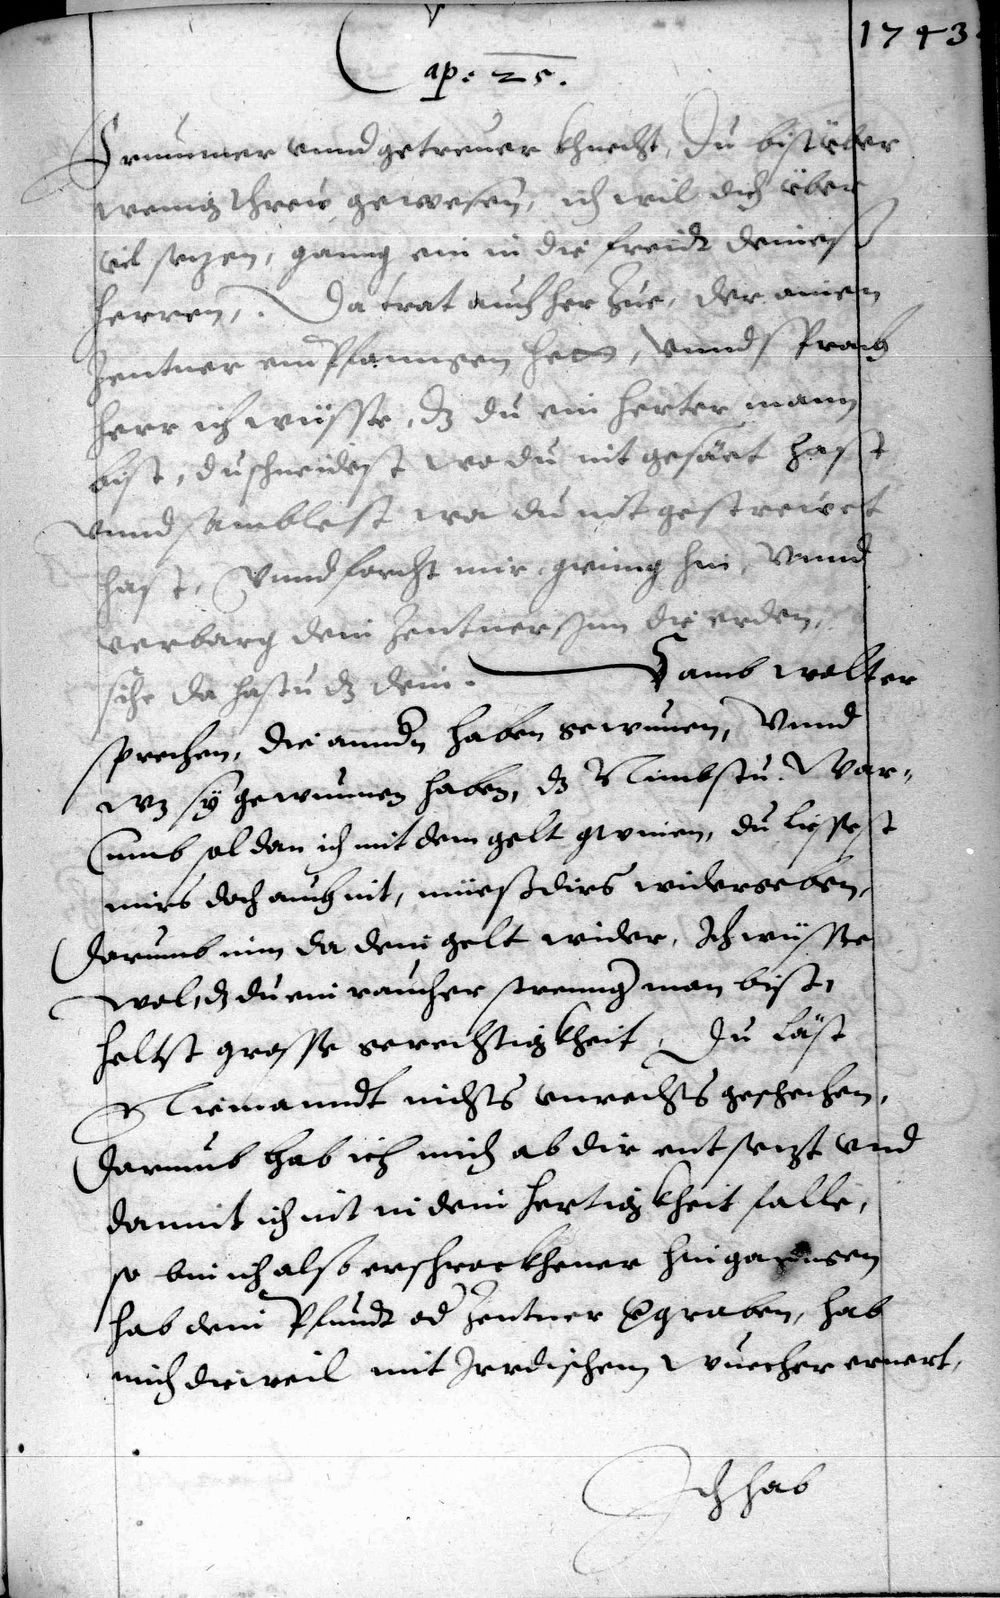 1743.
Cap: 25.
Frummer vnnd getreuer khnecht, Du bist über
wenig threw gewesen, ich wil dich über
vil sezen, ganng ein in die freidt deines
herren, Da trat auch her Zue, der ainen
Zentner empfanngen het, vnnd sprach
herr ich wüsste, dz du ein herter mann
bist, du schneidest wo du nit gesäet hast
vnnd samblest wa du nit gestrewet
hast, Vnnd forcht mir, gieng hin, Vnnd
verbarg dein Zentner Inn die erden,
sihe da hastu dz dein. Samb wolt er
sprechen, die anndn haben gewunen, Vnnd
wz sÿ gewunnen haben, dz Nimbstu. War-
umb sol dan ich mit dem gelt gwinen, du liessest
mirs doch auch nit, müeß dirs widergeben,
darumb nim da dein gelt wider, Ich wüsste
wol, dz du ein raucher strenng man bist,
heltst grosse gerechtigkheit, Du läst
Niemanndt nichts vnrechts geschechen,
darumb hab ich mich ab dir entsezt vnd
damit ich nit in dein hertigkheit falle,
so bin ich also erschrockhener hingangen
hab dein Pfundt od Zentner vgraben, hab
mich dieweil mit Irrdischem wuecher ernert,
Ich hab